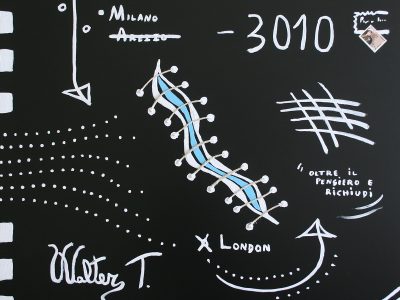 Milano
Arezzo
-3010
" OLTRE IL
PENSIERO E
RICHIUDI
X LONDON
Walter T.